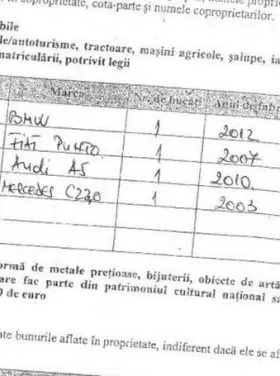 în coproprietate, cota-parte și numele coproprietarilor.
bile
le/autoturisme, tractoare, mașini agricole, șalupe, ia
matriculării, potrivit legii
Marca Nr. de bucăți Anul de fab
BMW 1 2012
FIAT PUNTO 1 2007
Audi A5 1 2010
MERCEDES C220 1 2003
ormă de metale prețioase, bijuterii, obiecte de artă
are fac parte din patrimoniul cultural național sa
0 de euro
ate bunurile aflate în proprietate, indiferent dacă ele se af